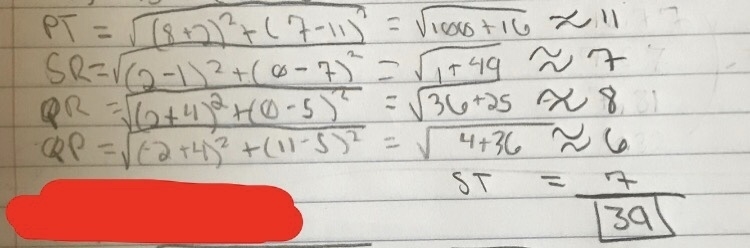 PT = √(8+2)²+(7-11)² = √100+16 ≈ 11
SR=√(2-1)²+(0-7)² = √1+49 ≈ 7
QR =√(2+4)²+(0-5)² = √36+25 ≈ 8
QP =√(-2+4)²+(11-5)² = √4+36 ≈ 6
ST = 7
39